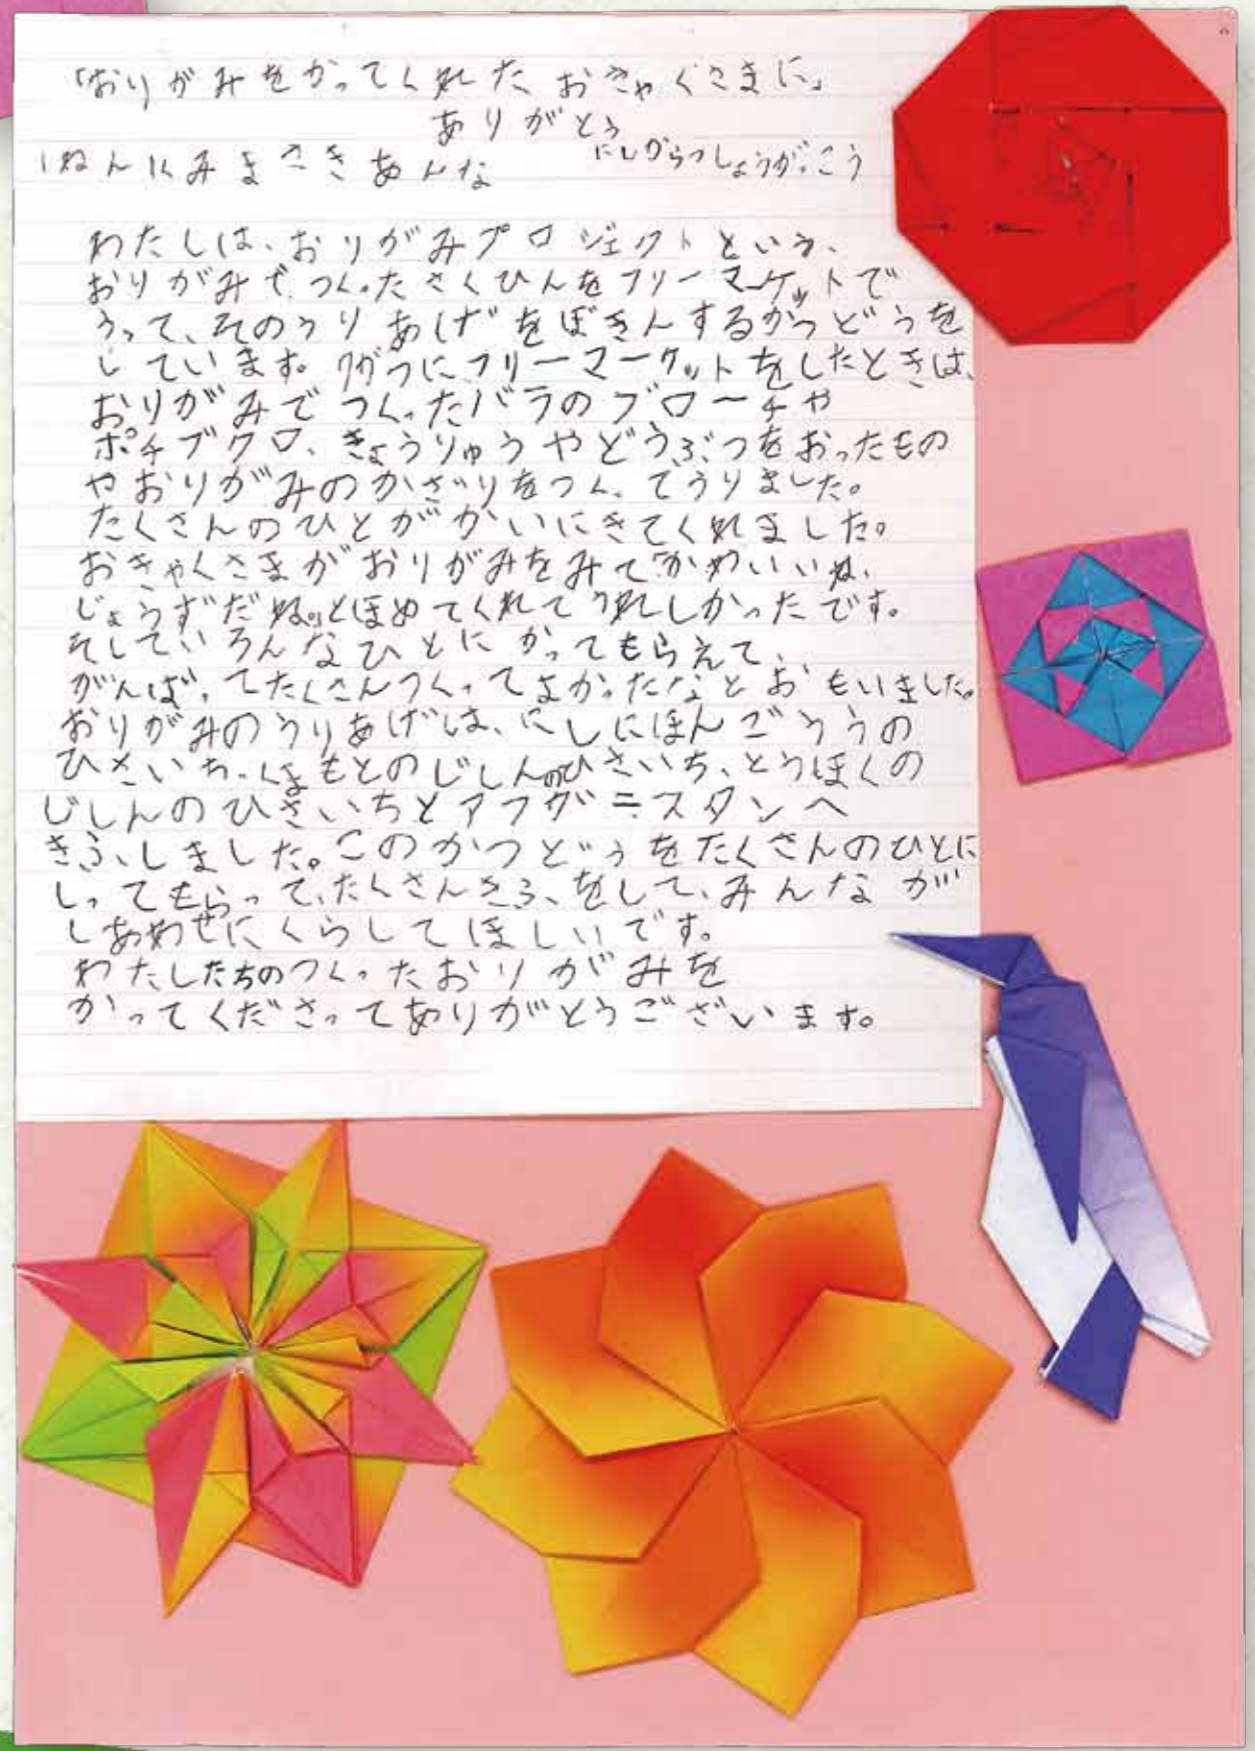 「おりがみをかってくれたおきゃくさまに」
ありがとう
にしからつしょうがっこう
1ねん1くみまさきあんな
わたしは、おりがみプロジェクトという、
おりがみでつくったさくひんをフリーマーケットで
うって、そのうりあげをぼきんするかつどうを
しています。9がつにフリーマーケットをしたときは、
おりがみでつくったバラのブローチや
ポチブクロ、きょうりゅうやどうぶつをおったもの
やおりがみのかざりをつくってうりました。
たくさんのひとがかいにきてくれました。
おきゃくさまがおりがみをみて「かわいいね、
じょうずだね。」とほめてくれてうれしかったです。
そしていろんなひとにかってもらえて、
がんばってたくさんつくってよかったなとおもいました。
おりがみのうりあげは、にしにほんごううの
ひさいち、くまもとのじしんのひさいち、とうほくの
じしんのひさいちとアフガニスタンへ
きふしました。このかつどうをたくさんのひとに
しってもらって、たくさんきふをして、みんなが
しあわせにくらしてほしいです。
わたしたちのつくったおりがみを
かってくださってありがとうございます。